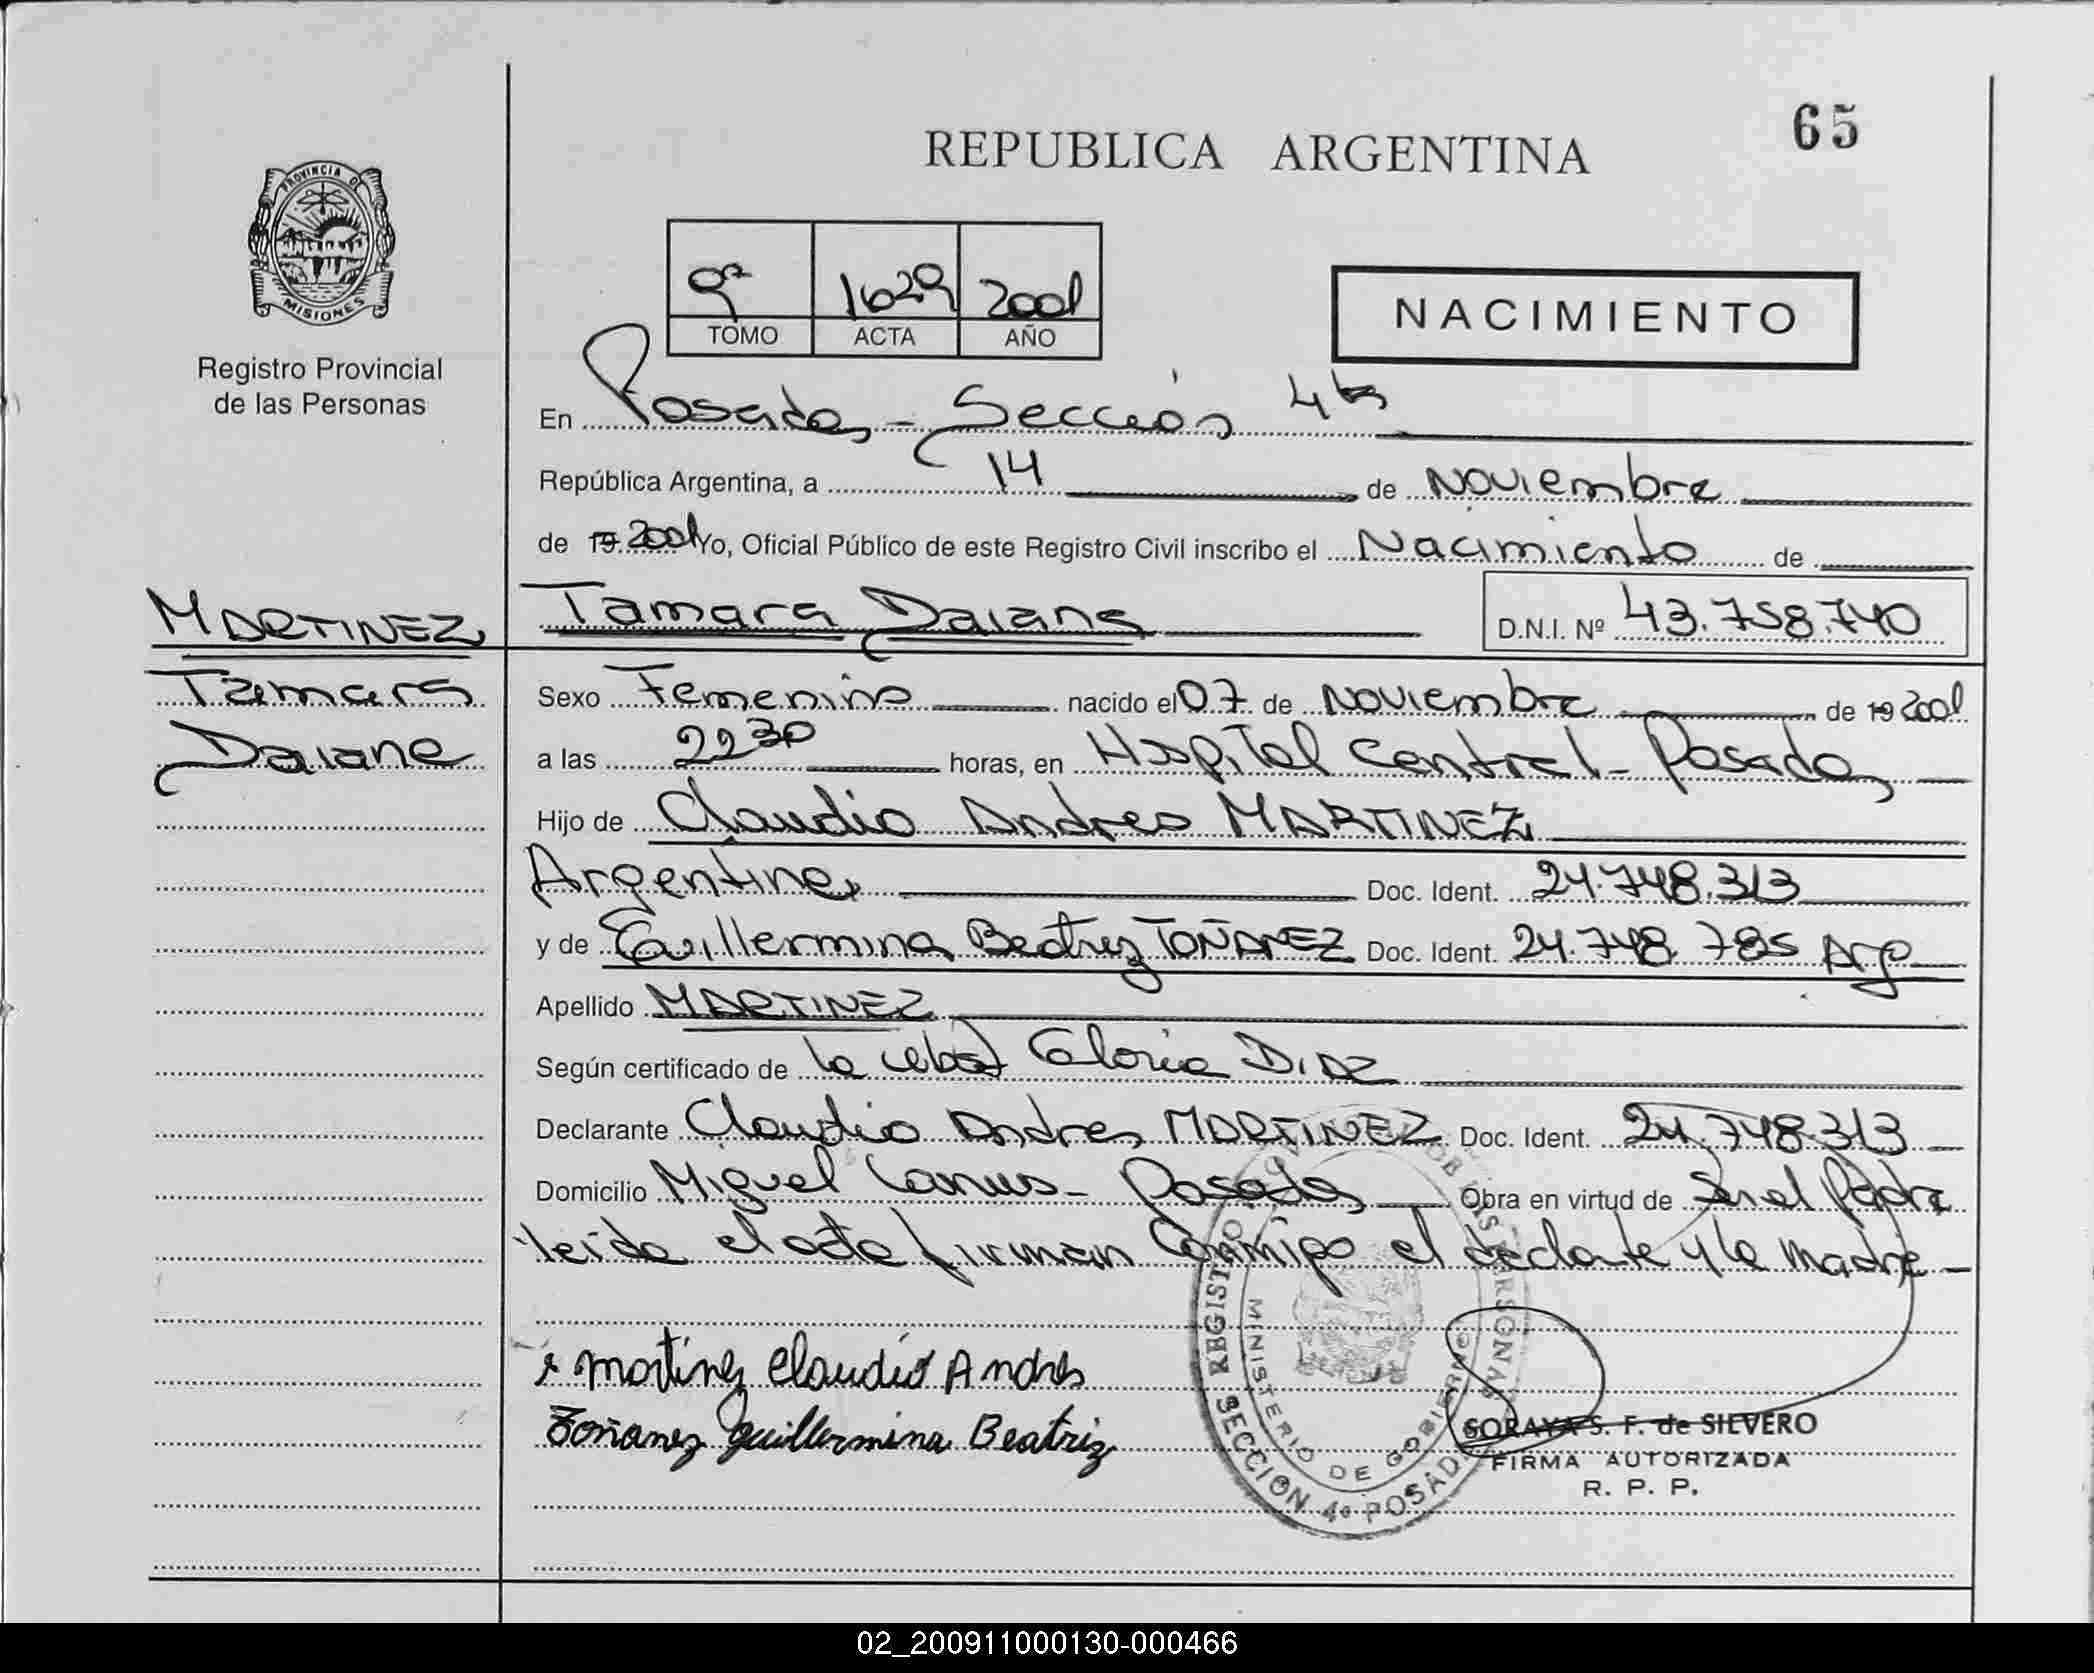 65
REPUBLICA ARGENTINA
PROVINCIA DE
MISIONES
Registro Provincial
de las Personas
9ª 1629 2001
TOMO ACTA AÑO
NACIMIENTO
En Posadas - Sección 4ta
República Argentina, a 14 de Noviembre
de 19 2001 Yo, Oficial Público de este Registro Civil inscribo el Nacimiento de
MARTINEZ Tamara Daiana D.N.I. Nº 43.758.740
Tamara
Daiane
Sexo Femenino nacido el 07 de Noviembre de 19 2001
a las 2230 horas, en Hospital Central - Posadas
Hijo de Claudio Andres MARTINEZ
Argentino Doc. Ident. 24.748.313
y de Guillermina Beatriz TOÑANEZ Doc. Ident. 24.748.785 Arg
Apellido MARTINEZ
Según certificado de la Gloria DIAZ
Declarante Claudio Andres MARTINEZ Doc. Ident. 24.748.313
Domicilio Miguel Lanus - Posadas Obra en virtud de Ser el Padre
leida el acta firman Conmigo el declarante y la madre
Martinez Claudio Andres
Toñanez Guillermina Beatriz
SECCION 4º POSADAS
MINISTERIO DE GOBIERNO
SORAYA S. F. de SILVERO
FIRMA AUTORIZADA
R. P. P.
02_200911000130-000466